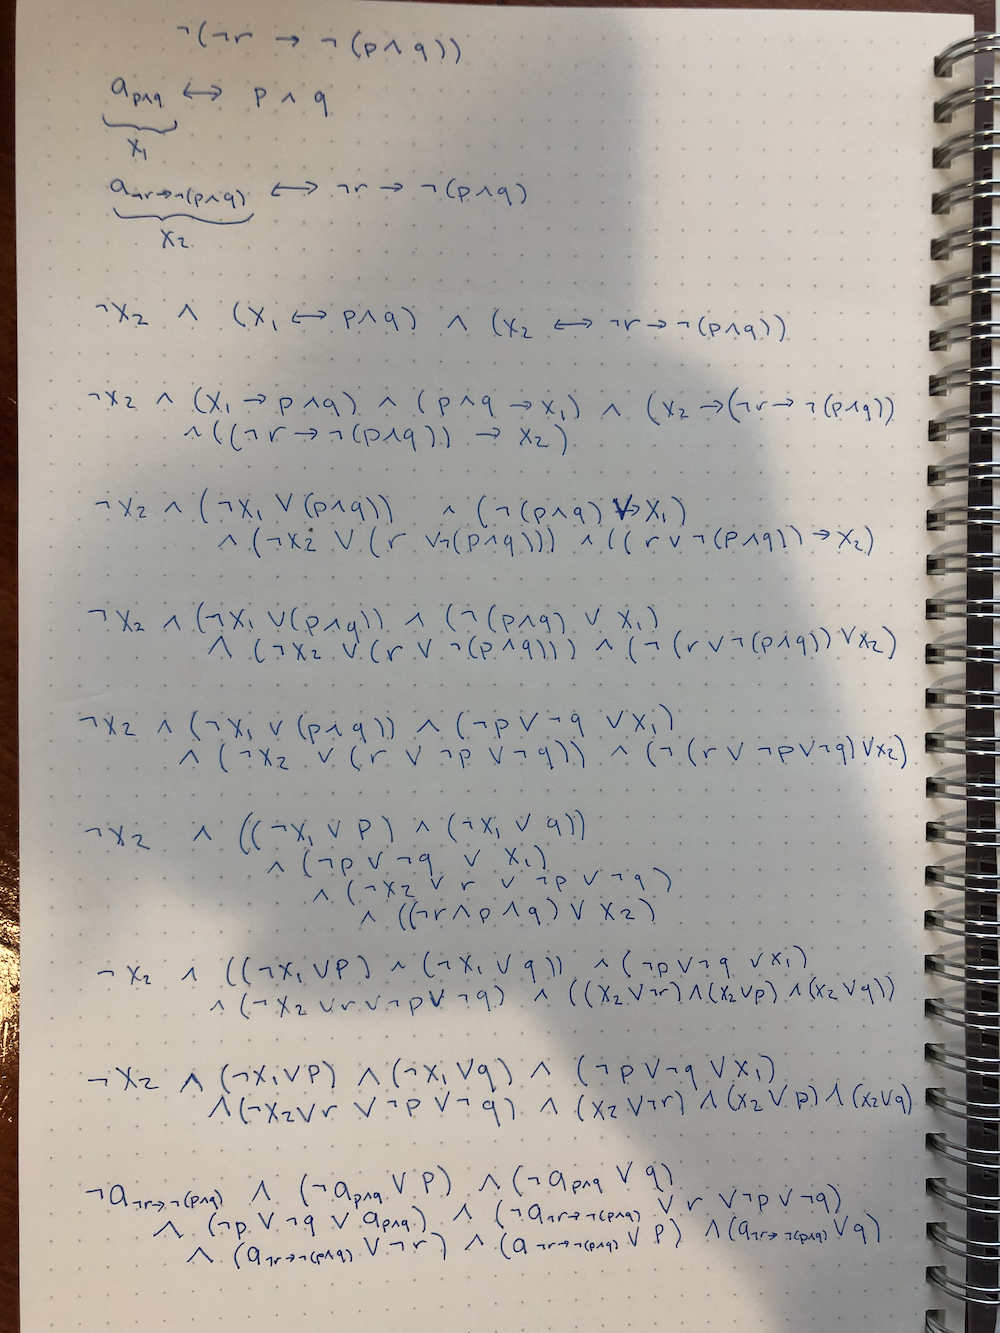 ¬(¬r → ¬(p∧q))
a_{p∧q} ↔ p ∧ q
x₁
a_{¬r→¬(p∧q)} ↔ ¬r → ¬(p∧q)
x₂
¬x₂ ∧ (x₁ ↔ p∧q) ∧ (x₂ ↔ ¬r → ¬(p∧q))
¬x₂ ∧ (x₁ → p∧q) ∧ (p∧q → x₁) ∧ (x₂ → (¬r → ¬(p∧q))
∧ ((¬r → ¬(p∧q)) → x₂)
¬x₂ ∧ (¬x₁ ∨ (p∧q)) ∧ (¬(p∧q) ∨ x₁)
∧ (¬x₂ ∨ (r ∨ ¬(p∧q))) ∧ ((r ∨ ¬(p∧q)) → x₂)
¬x₂ ∧ (¬x₁ ∨ (p∧q)) ∧ (¬(p∧q) ∨ x₁)
∧ (¬x₂ ∨ (r ∨ ¬(p∧q))) ∧ (¬(r ∨ ¬(p∧q)) ∨ x₂)
¬x₂ ∧ (¬x₁ ∨ (p∧q)) ∧ (¬p ∨ ¬q ∨ x₁)
∧ (¬x₂ ∨ (r ∨ ¬p ∨ ¬q)) ∧ (¬(r ∨ ¬p ∨ ¬q) ∨ x₂)
¬x₂ ∧ ((¬x₁ ∨ p) ∧ (¬x₁ ∨ q))
∧ (¬p ∨ ¬q ∨ x₁)
∧ (¬x₂ ∨ r ∨ ¬p ∨ ¬q)
∧ ((¬r ∧ p ∧ q) ∨ x₂)
¬x₂ ∧ ((¬x₁ ∨ p) ∧ (¬x₁ ∨ q)) ∧ (¬p ∨ ¬q ∨ x₁)
∧ (¬x₂ ∨ r ∨ ¬p ∨ ¬q) ∧ ((x₂ ∨ ¬r) ∧ (x₂ ∨ p) ∧ (x₂ ∨ q))
¬x₂ ∧ (¬x₁ ∨ p) ∧ (¬x₁ ∨ q) ∧ (¬p ∨ ¬q ∨ x₁)
∧ (¬x₂ ∨ r ∨ ¬p ∨ ¬q) ∧ (x₂ ∨ ¬r) ∧ (x₂ ∨ p) ∧ (x₂ ∨ q)
¬a_{¬r→¬(p∧q)} ∧ (¬a_{p∧q} ∨ p) ∧ (¬a_{p∧q} ∨ q)
∧ (¬p ∨ ¬q ∨ a_{p∧q}) ∧ (¬a_{¬r→¬(p∧q)} ∨ r ∨ ¬p ∨ ¬q)
∧ (a_{¬r→¬(p∧q)} ∨ ¬r) ∧ (a_{¬r→¬(p∧q)} ∨ p) ∧ (a_{¬r→¬(p∧q)} ∨ q)